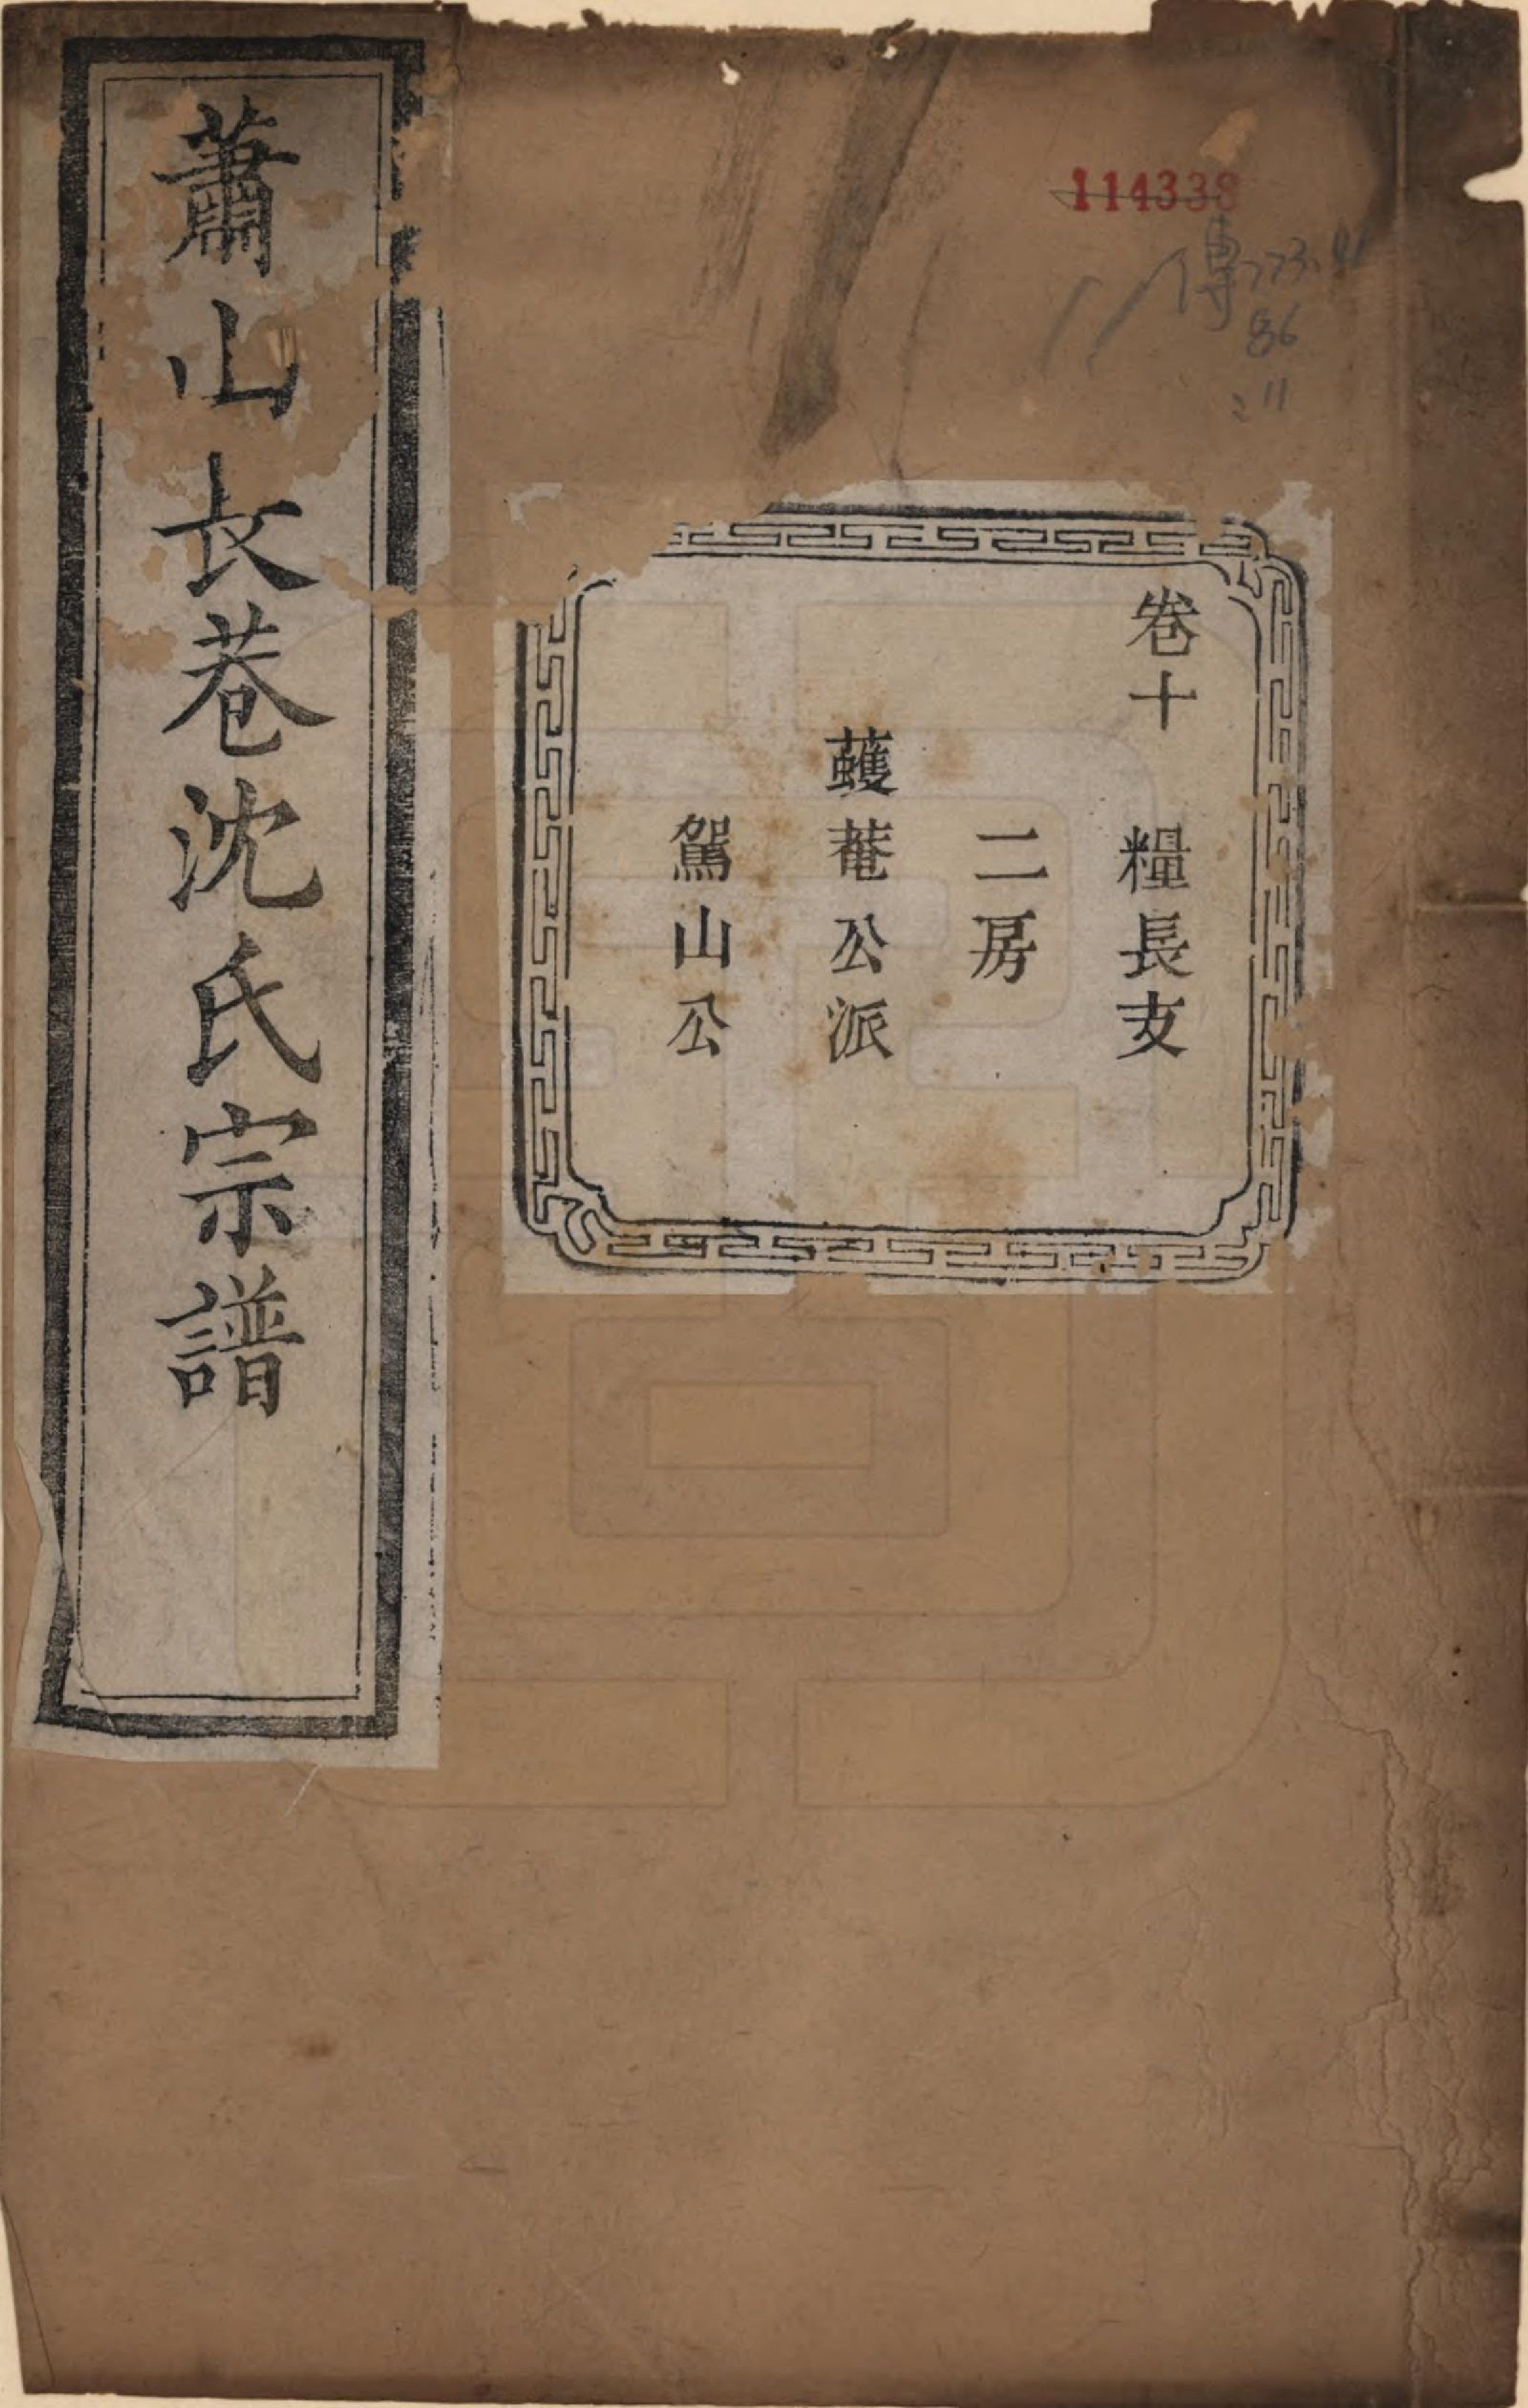 蕭山長巷沈氏宗譜
卷十 糧長支
二房
蠖菴公派
駕山公
114338
傳773.41
86
:11